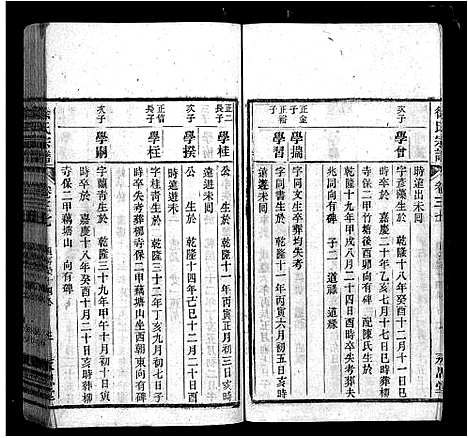 徐氏宗譜
卷三
時遠出未同
次子
學曾
字彥藻生於 乾隆十八年癸酉十二月十一日巳
時卒於 嘉慶二十年乙亥七月十七日巳時葬柳
寺保二甲竹塘後酉卯向有碑 配陳氏生於
乾隆十九年甲戌八月二十四日亥時卒失考葬夫
兆同向有碑 子二 道 道
正金
長子
學揣
字同文生卒葬均失考
次子
學習
字同書生於 乾隆十一年丙寅六月初五日亥時
遠遊未同
正二
長子
學桂
公 生於 乾隆十一年丙寅正月初三日亥時
遠遊未同
次子
學揆
公 生於 乾隆十四年己巳十二月二十日酉
時遠遊未同
正信
長子
學枉
字桂青生於 乾隆三十二年丁亥九月初七日子
時卒失考葬柳寺保二甲藕塘山坐西朝東向有碑
次子
學嗣
字 青生於 乾隆三十九年甲午十月初十日寅
時卒於 嘉慶十八年癸酉十月二十日亥時葬柳
寺保二甲藕塘山 向有碑